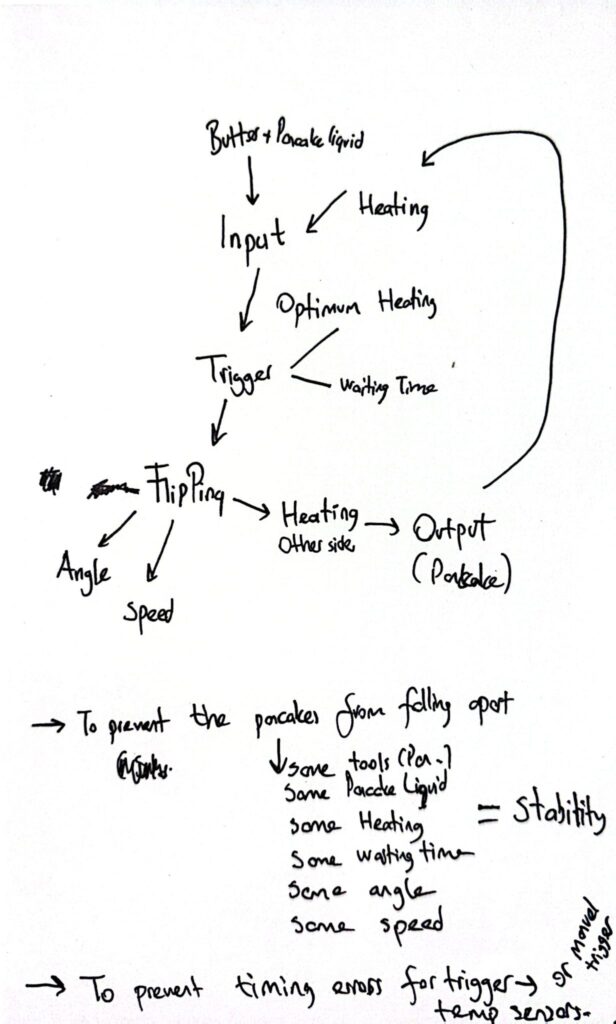 Butter + Pancake liquid
Heating
Input
Optimum Heating
Trigger
Waiting Time
Flipping
Heating
Other side
Output
(Pancake)
Angle
Speed
→ To prevent the pancakes from falling apart
same tools (Pan..)
same Pancake Liquid
same Heating
= Stability
same waiting time
same angle
same speed
or manuel
trigger
→ To prevent timing errors for trigger →
temp sensors.